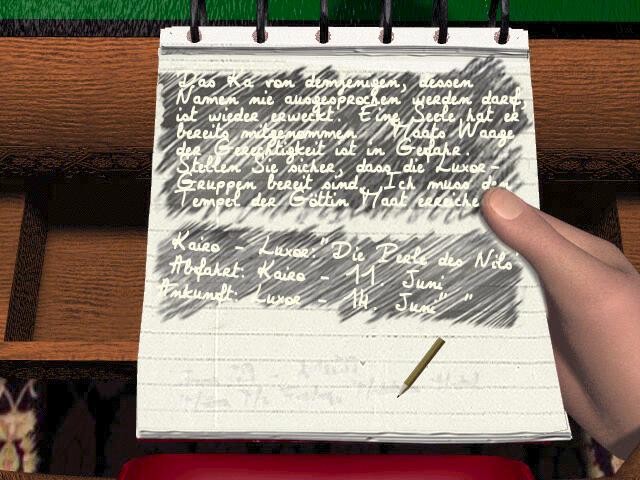 Das Ka von demjenigen, dessen
Namen nie ausgesprochen werden darf,
ist wieder erweckt. Eine Seele hat er
bereits mitgenommen. Maats Waage
der Gerechtigkeit ist in Gefahr.
Stellen Sie sicher, dass die Luxor-
Gruppen bereit sind. Ich muss den
Tempel der Göttin Maat
Kairo - Luxor: "Die Perle des Nils"
Abfahrt: Kairo - 11. Juni
Ankunft: Luxor - 14. Juni" "